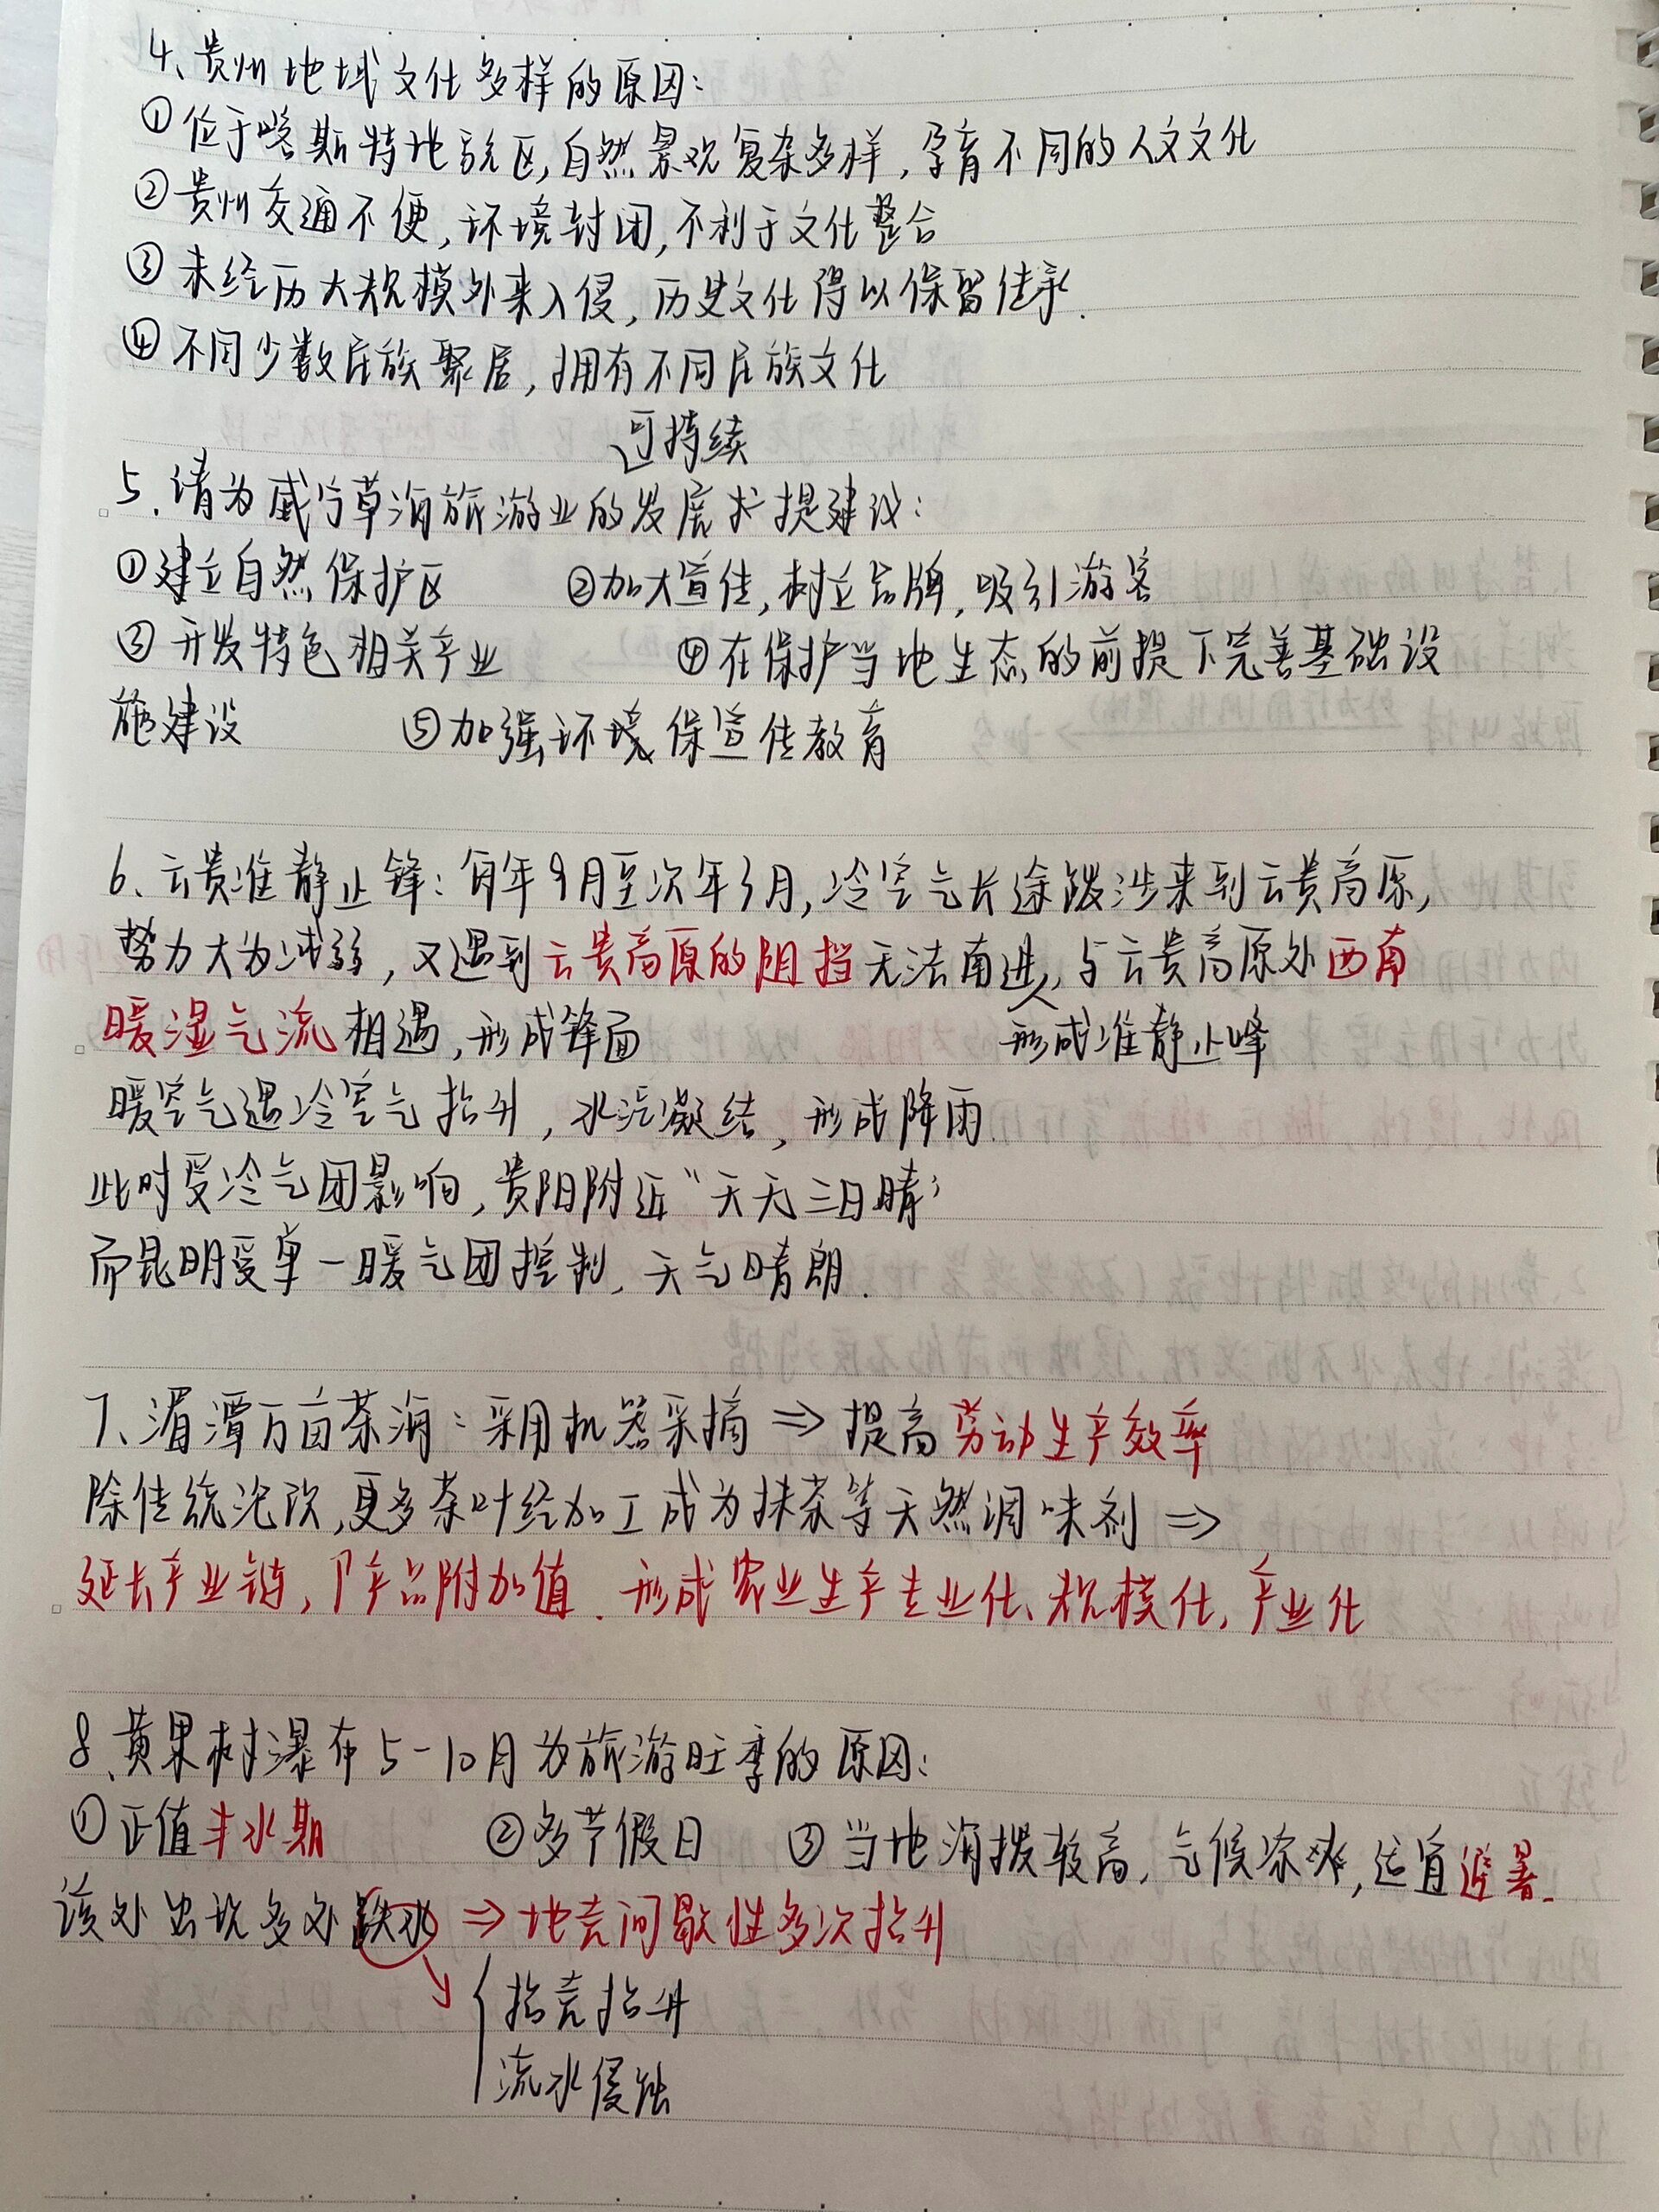 4、贵州地域文化多样的原因：
①位于喀斯特地貌区，自然景观复杂多样，孕育不同的人文文化
②贵州交通不便，环境封闭，不利于文化整合
③未经历大规模外来入侵，历史文化得以保留传承.
④不同少数民族聚居，拥有不同民族文化
可持续
5.请为威宁草海旅游业的发展 提建议：
①建立自然保护区 ②加大宣传，树立品牌，吸引游客
③开发特色相关产业 ④在保护当地生态的前提下完善基础设
施建设 ⑤加强环境保宣传教育
6、云贵准静止锋：每年9月至次年3月，冷空气长途跋涉来到云贵高原，
势力大为减弱，又遇到云贵高原的阻挡无法南进，与云贵高原外西南
暖湿气流相遇，形成锋面
形成准静止峰
暖空气遇冷空气抬升，水汽凝结，形成降雨.
此时受冷气团影响，贵阳附近“天无三日晴”
而昆明受单一暖气团控制，天气晴朗.
7、湄潭万亩茶海：采用机器采摘⇒提高劳动生产效率
除传统泡饮，更多茶叶经加工成为抹茶等天然调味剂⇒
延长产业链，↑产品附加值.形成农业生产专业化、规模化，产业化
8、黄果树瀑布5-10月为旅游旺季的原因：
①正值丰水期 ②多节假日 ③当地海拔较高，气候凉爽，适宜避暑.
该处出现多处跌水⇒地壳间歇性多次抬升
抬壳抬升
流水侵蚀